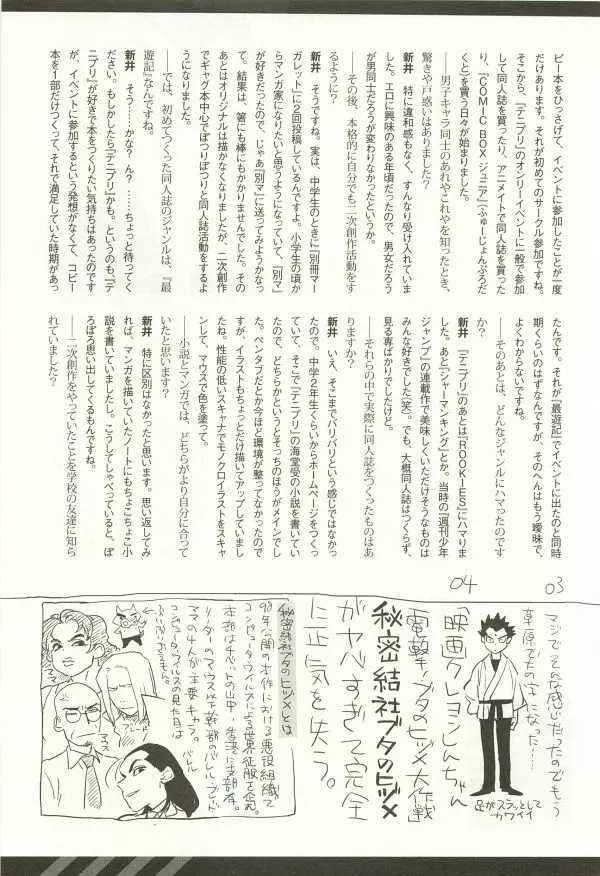 ピー本をひっさげて、イベントに参加したことが一度
だけあります。それが初めてのサークル参加ですね。
そこから、『テニプリ』のオンリーイベントに一般で参加
して同人誌を買ったり、アニメイトで同人誌を買った
り、『COMIC BOX ジュニア』(ふゅーじょんぷろだ
くと)を買う日々が始まりました。
――男子キャラ同士のあれやこれやを知ったとき、
驚きや戸惑いはありました?
新井　特に違和感もなく、すんなり受け入れていま
した。エロに興味のある年頃だったので、男女だろう
が男同士だろうが変わりなかったというか。
――その後、本格的に自分でも二次創作活動をす
るように?
新井　そうですね。実は、中学生のときに『別冊マー
ガレット』に2回投稿しているんですよ。小学生の頃か
らマンガ家になりたいと思うようになっていて、『別マ』
が好きだったので、じゃあ『別マ』に送ってみようかなっ
て。結果は、箸にも棒にもかかりませんでした。その
あとはオリジナルは描かなくなりましたが、二次創作
でギャグ本中心でぽつりぽつりと同人誌活動をするよ
うになりました。
――では、初めてつくった同人誌のジャンルは、『最
遊記』なんですね。
新井　そう……かな?　ん?　……ちょっと待ってく
ださい。もしかしたら『テニプリ』かも。というのも、『テ
ニプリ』が好きで本をつくりたい気持ちはあったのです
が、イベントに参加するという発想がなくて、コピー
本を1部だけつくって、それで満足していた時期があっ
たんです。それが『最遊記』でイベントに出たのと同時
期くらいのはずなんですが、そのへんはもう曖昧で、
よくわからないですね。
――そのあとは、どんなジャンルにハマったのです
か?
新井　『テニプリ』のあとは『ROOKIES』にハマりま
した。あと『シャーマンキング』とか。当時の『週刊少年
ジャンプ』の連載作で美味しくいただけそうなものは
みんな好きでした(笑)。でも、大概同人誌はつくらず、
見る専ばかりでしたけど。
――それらの中で実際に同人誌をつくったものはあ
りますか?
新井　いえ、そこまでバリバリという感じではなかっ
たので。中学2年生くらいからホームページをつくっ
ていて、そこで『テニプリ』の海堂受の小説を書いてい
たので、どちらかというとそっちのほうがメインでし
た。ペンタブだとか今ほど環境が整ってなかったので
すが、イラストもちょっとだけ描いてアップしていまし
たね。性能の低いスキャナでモノクロイラストをスキャ
ンして、マウスで色を塗って。
――小説とマンガでは、どちらがより自分に合って
いたと思います?
新井　特に区別はなかったと思います。思い返してみ
れば、マンガを描いていたノートにもちょこちょこ小
説を書いていましたし。こうしてしゃべっていると、ぽ
ろぽろ思い出してくるもんですね。
――二次創作をやっていたことを学校の友達に知ら
れていました?
03
マジでそんな感じだったのでもう
草原で大の字になった……
足がスラッとして
カワイイ
04
「映画クレヨンしんちゃん
電撃!ブタのヒヅメ大作戦
秘密結社ブタのヒヅメ
がヤバすぎて完全
に正気を失う。
秘密結社ブタのヒヅメとは
98年公開の本作における悪役組織で
コンピュータウイルスによる世界征服を企む。
本部はチベットの山中!香港に支部有。
リーダーのマウス以下幹部のバレル・ブレード
ママの4人が主要キャラ。
コンピュータウイルスの見た目は
ぶりぶりざえもん。
マウス
ブレード
バレル